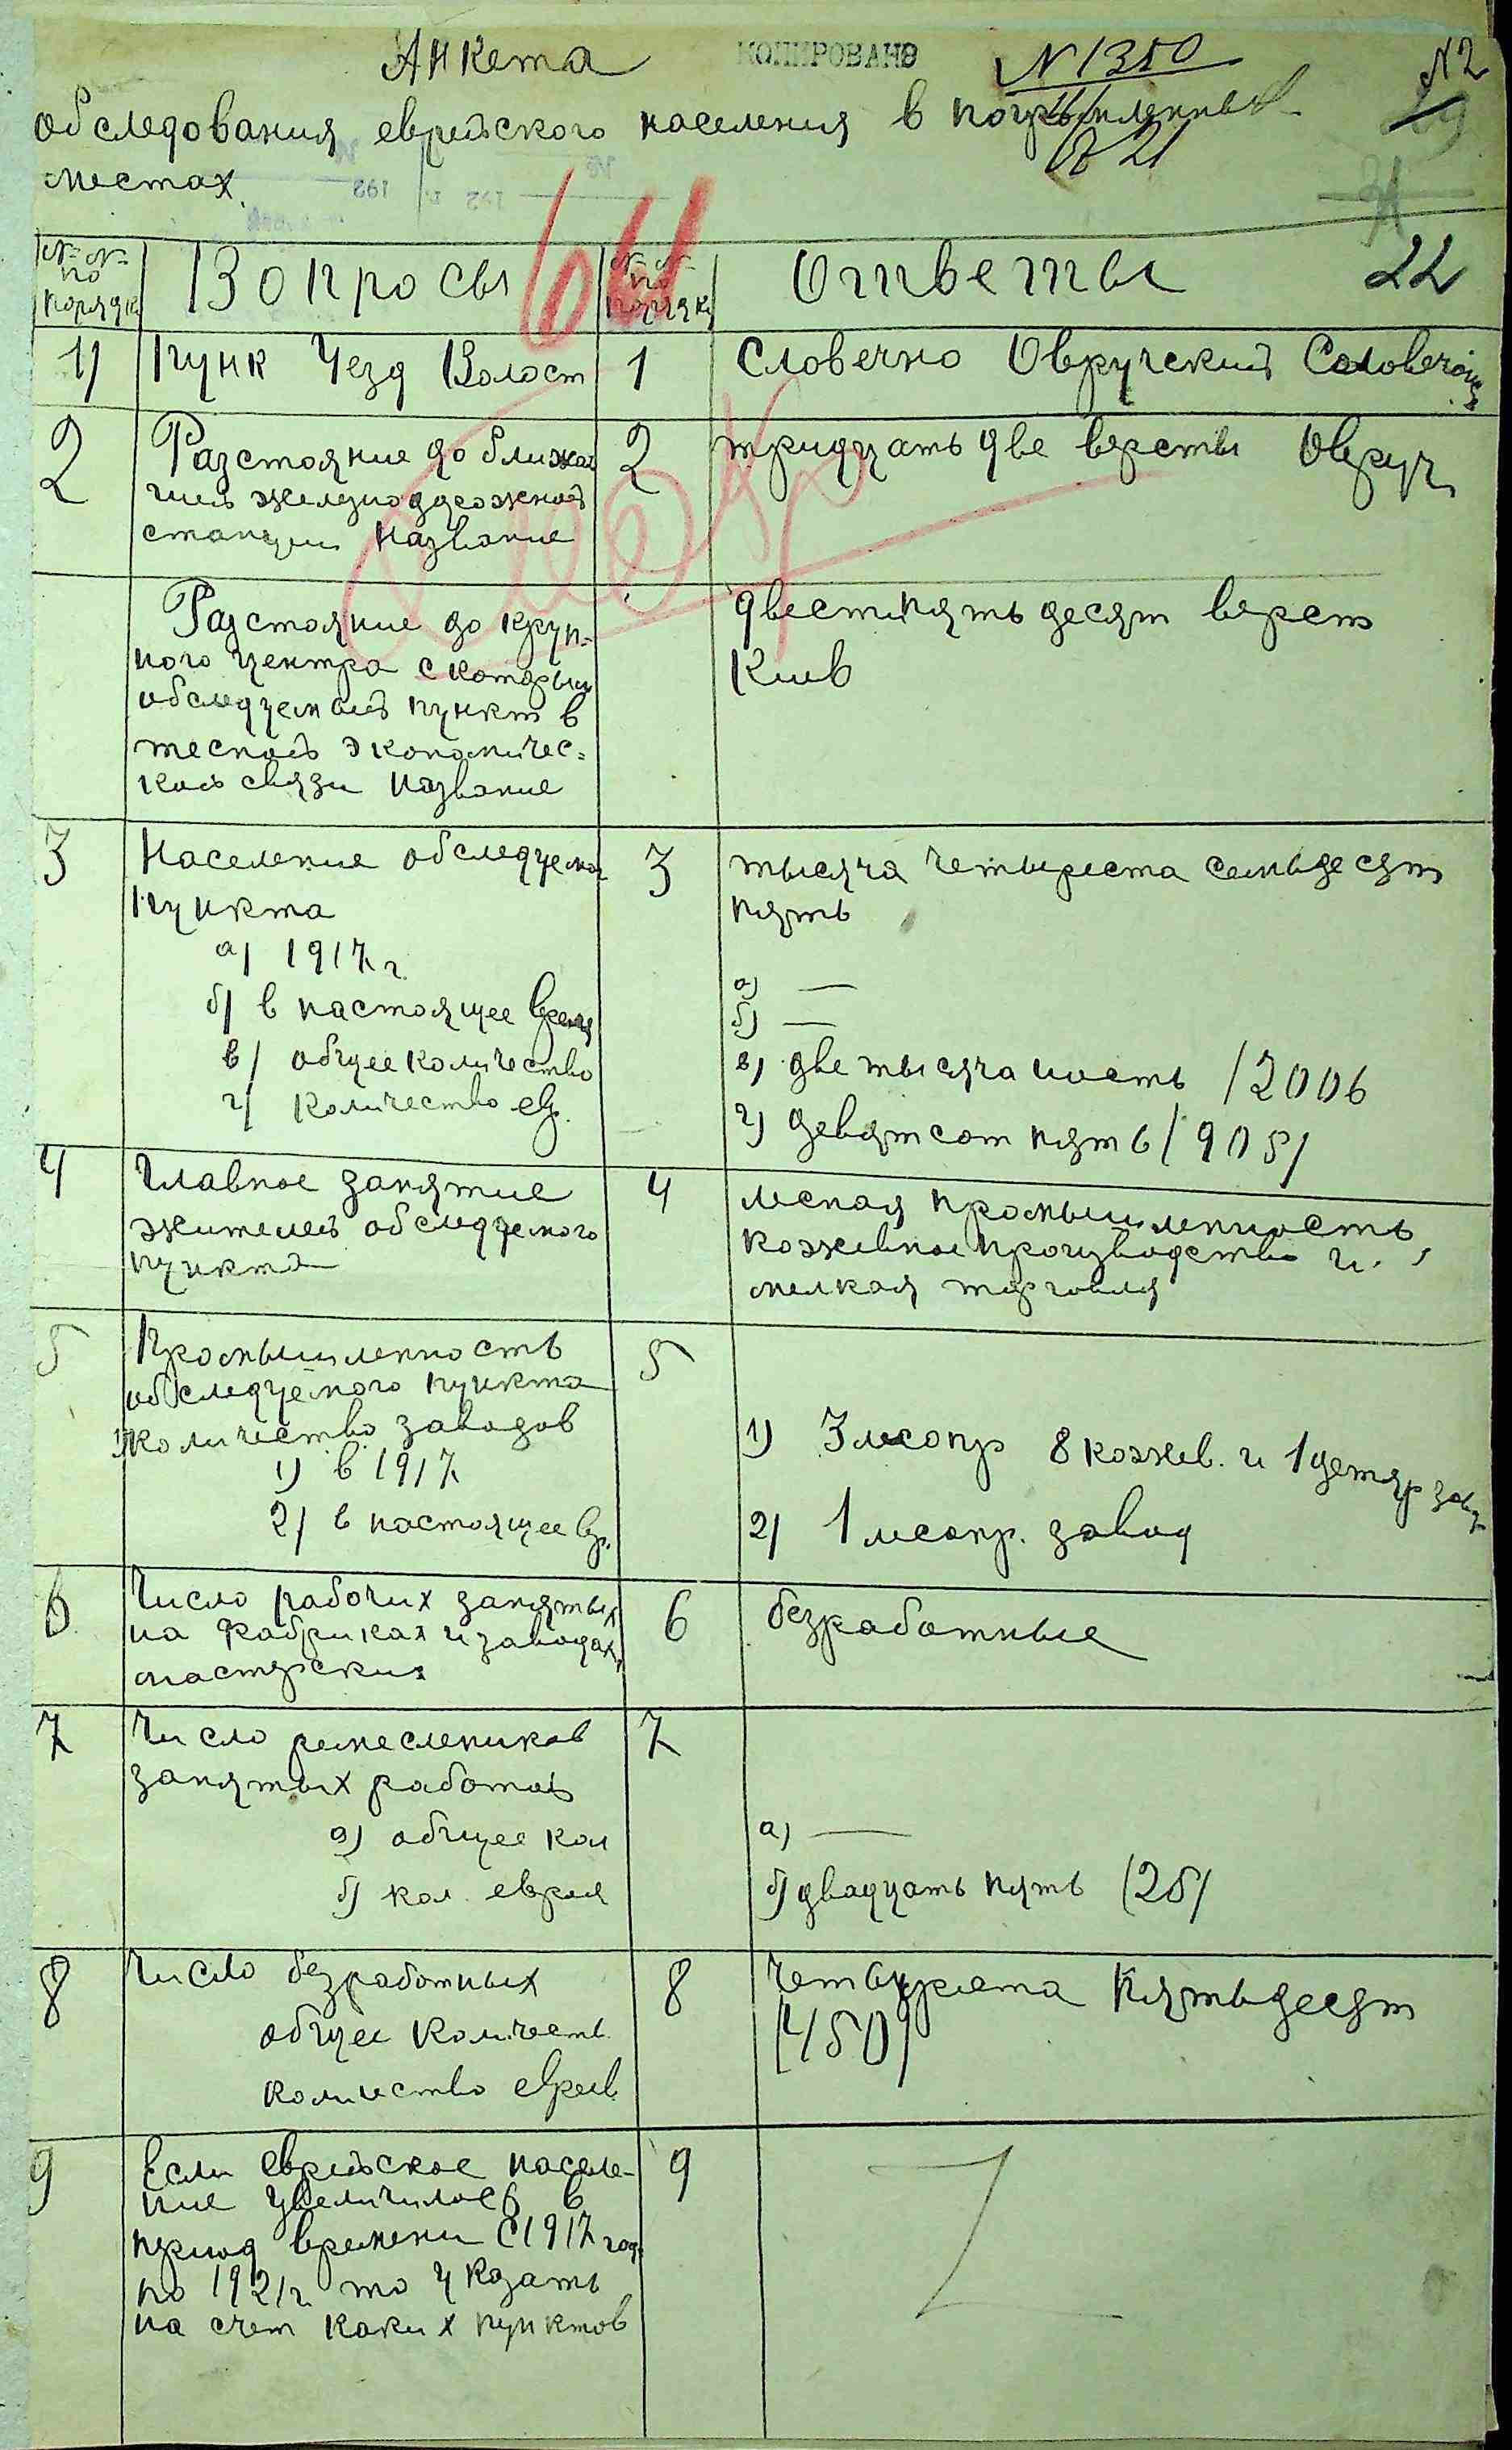 Анкета
КОПИРОВАНО
N 1350
N 2
обследования еврейского населения в погромленных
местах.
22
64
№ № по порядк
Вопросы
№ № по порядк
Ответы
1) Пунк Уезд Волост
1 Словечно Овручский Словечан
2 Разстояние до ближай
шей железнодорожной
станции название
2 тридцать две версты Овруч
Разстояние до круп-
ного центра с которым
обследуемый пункт в
тесной экономичес-
кой связи название
двестипятьдесят верст
Киев
3 Население обследуемо
пункта
а) 1917 г.
б) в настоящее время
в) общее количество
г) количество евр.
3 тысяча четыреста семьдесят
пять
а) —
б) —
в) две тысяча шесть /2006
г) девятсот пять /905/
4 Главное занятие
жителей обследуемого
пункта
4 лесная промышленность
кожевное производство и
мелкая торговля
5 Промышленность
обследуемого пункта
1) количество заводов
1) в 1917
2) в настоящее вр.
5
1) 3 лесопр 8 кожев. и 1 детяр завод
2) 1 лесопр. завод
6 Число рабочих занятых
на фабриках и заводах,
мастерских
6 безработные
7 Число ремеслеников
занятых работой
а) общее кол
б) кол. еврея
7
а) —
б) двадцать пять /25/
8 Число безработных
общее количеств.
количество евреев
8 четыреста пятьдесят
/450/
9 Если еврейское населе-
ние увеличилось в
период времени с 1917 год.
по 1921 г. то указать
на счет каких пунктов
9